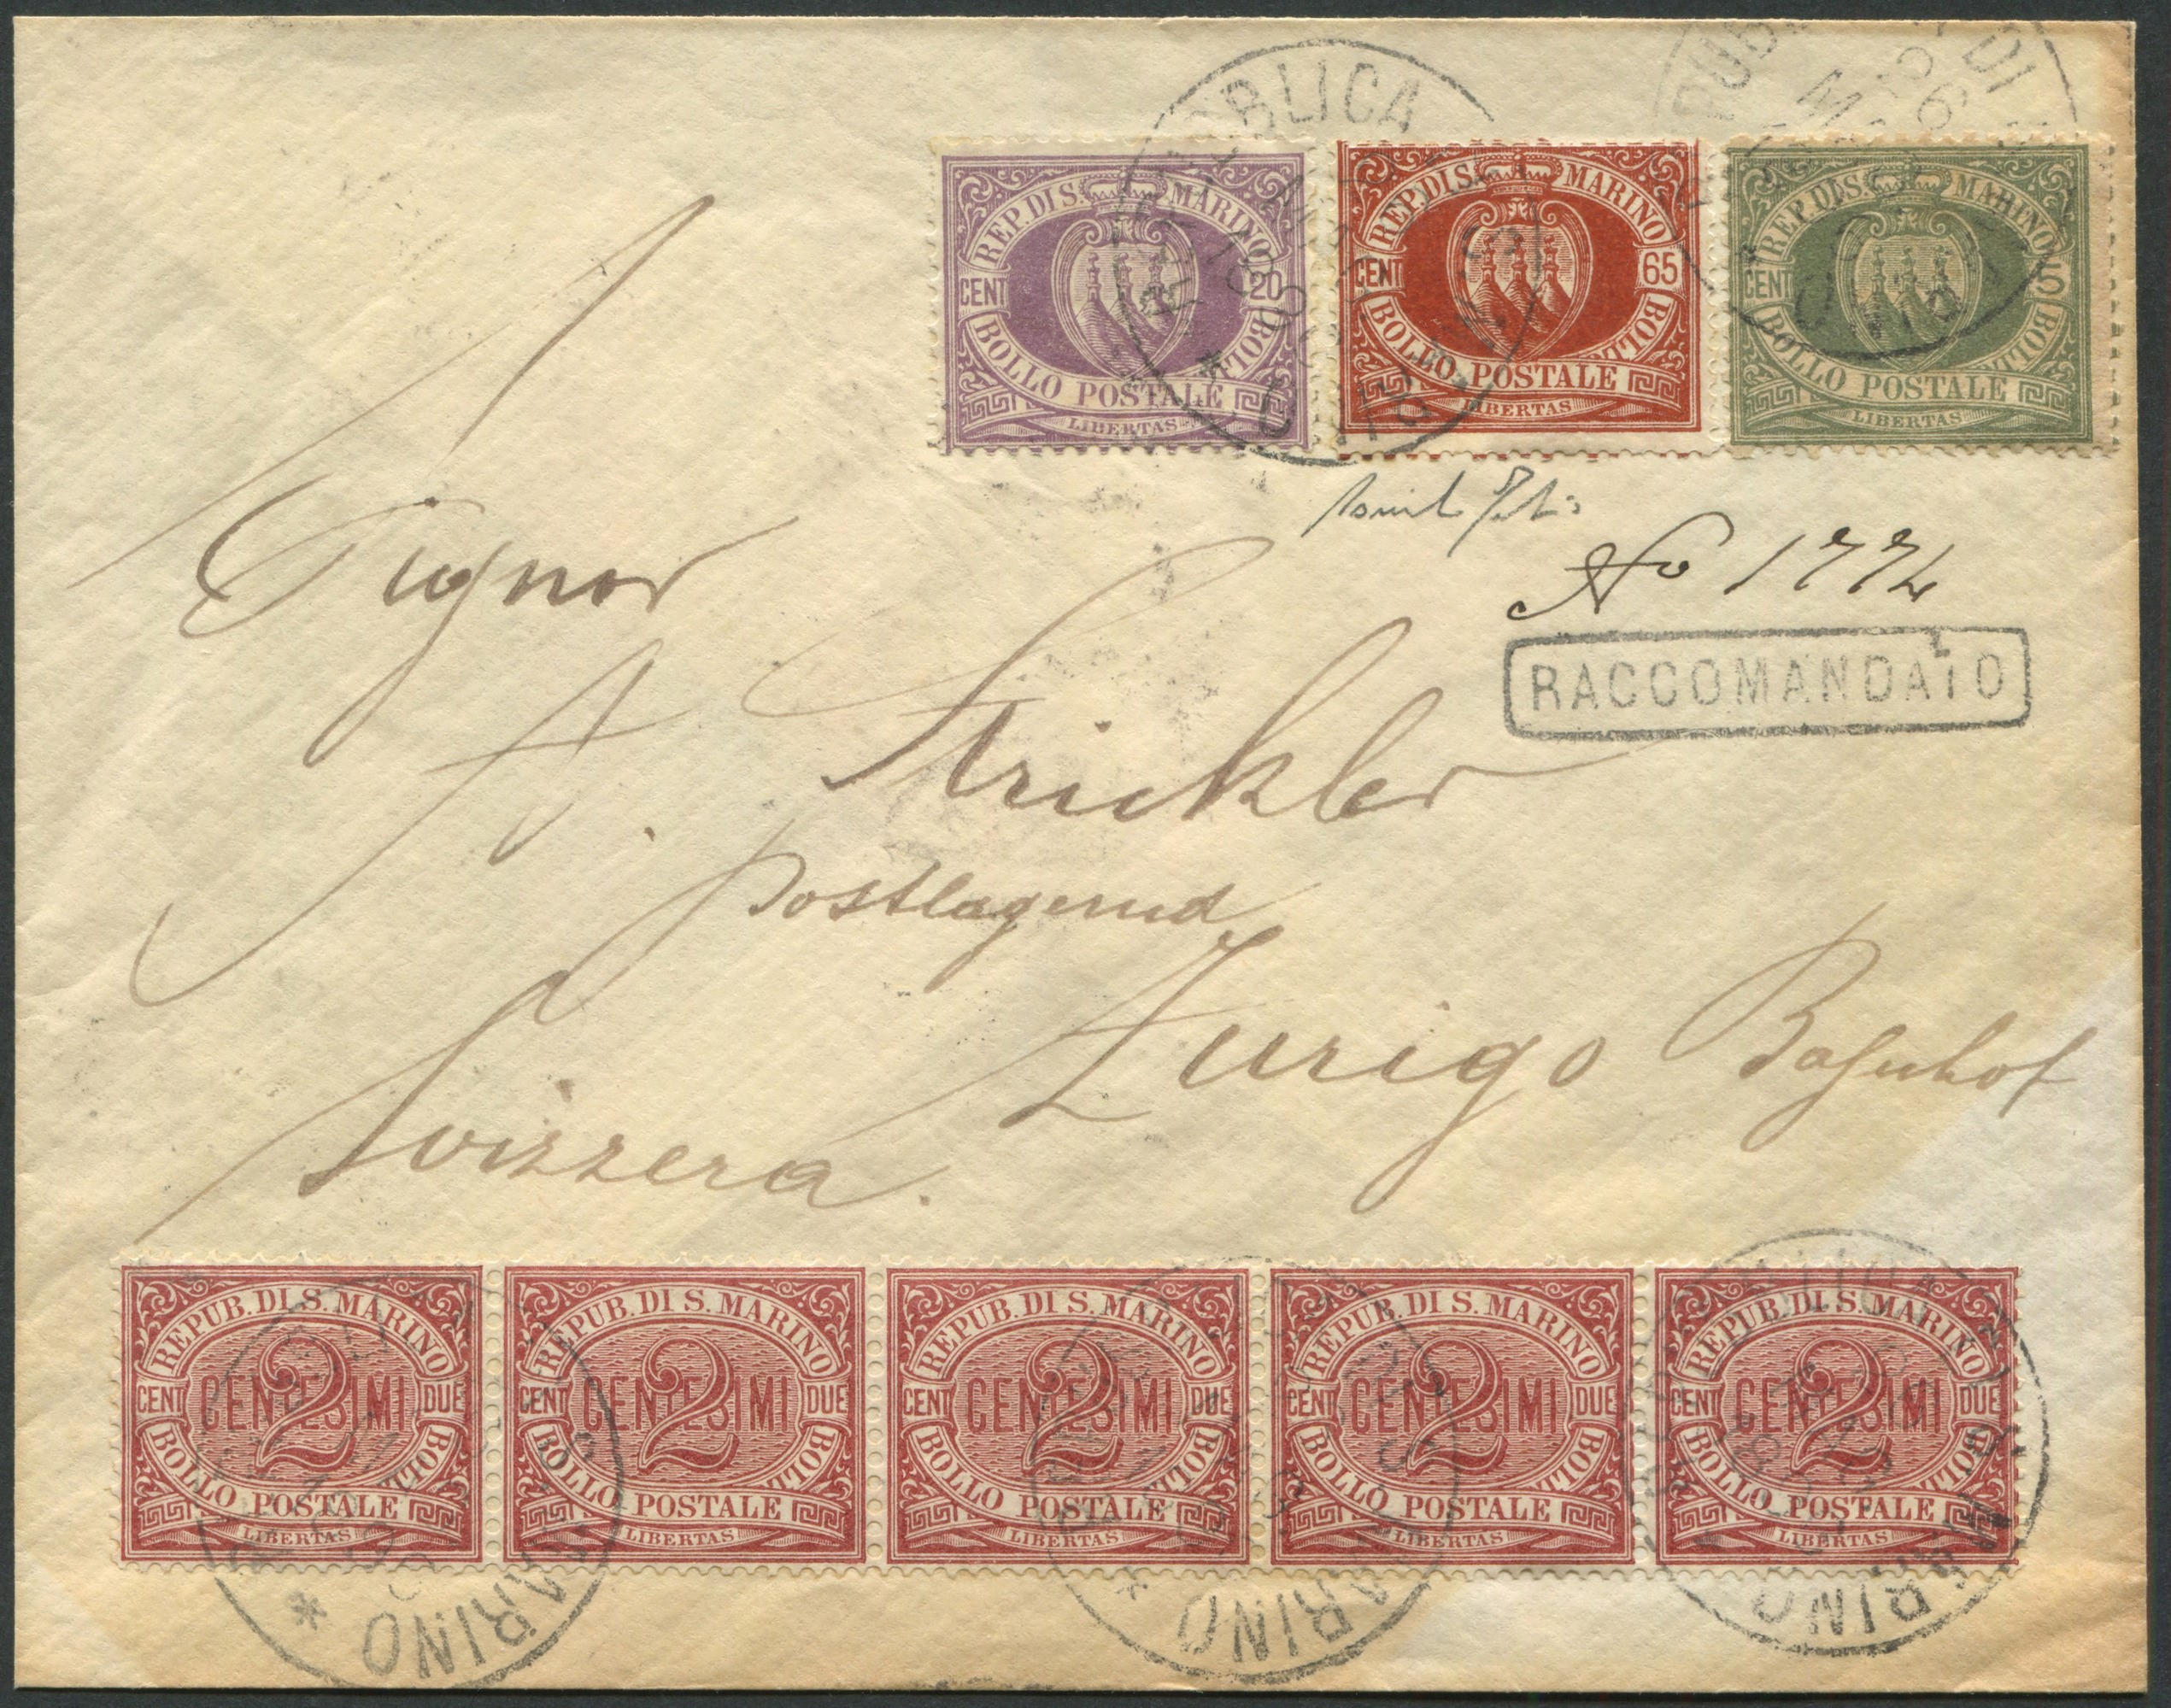 REPUBBLICA DI S. MARINO
REP. DI S. MARINO
CENT 20
BOLLO POSTALE
LIBERTAS
REP. DI S. MARINO
CENT 65
BOLLO POSTALE
LIBERTAS
REP. DI S. MARINO
CENT 5
BOLLO POSTALE
LIBERTAS
No 1774
RACCOMANDATO
Signor
A. Strickler
postlagernd
Zurigo Bahnhof
Svizzera.
REPUB. DI S. MARINO
CENT 2 CENTESIMI DUE
BOLLO POSTALE
LIBERTAS
REPUB. DI S. MARINO
CENT 2 CENTESIMI DUE
BOLLO POSTALE
LIBERTAS
REPUB. DI S. MARINO
CENT 2 CENTESIMI DUE
BOLLO POSTALE
LIBERTAS
REPUB. DI S. MARINO
CENT 2 CENTESIMI DUE
BOLLO POSTALE
LIBERTAS
REPUB. DI S. MARINO
CENT 2 CENTESIMI DUE
BOLLO POSTALE
LIBERTAS
MARINO
MARINO
MARINO